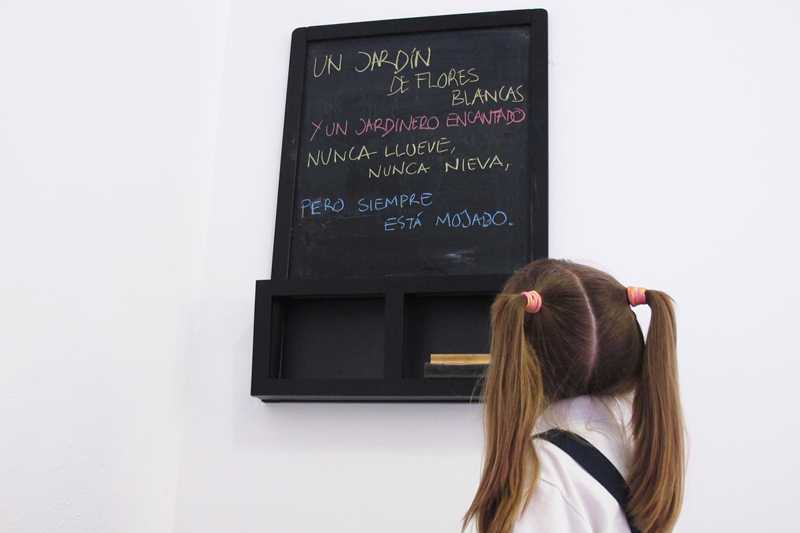 UN JARDÍN
DE FLORES
BLANCAS
Y UN JARDINERO ENCANTADO
NUNCA LLUEVE,
NUNCA NIEVA,
PERO SIEMPRE
ESTÁ MOJADO.